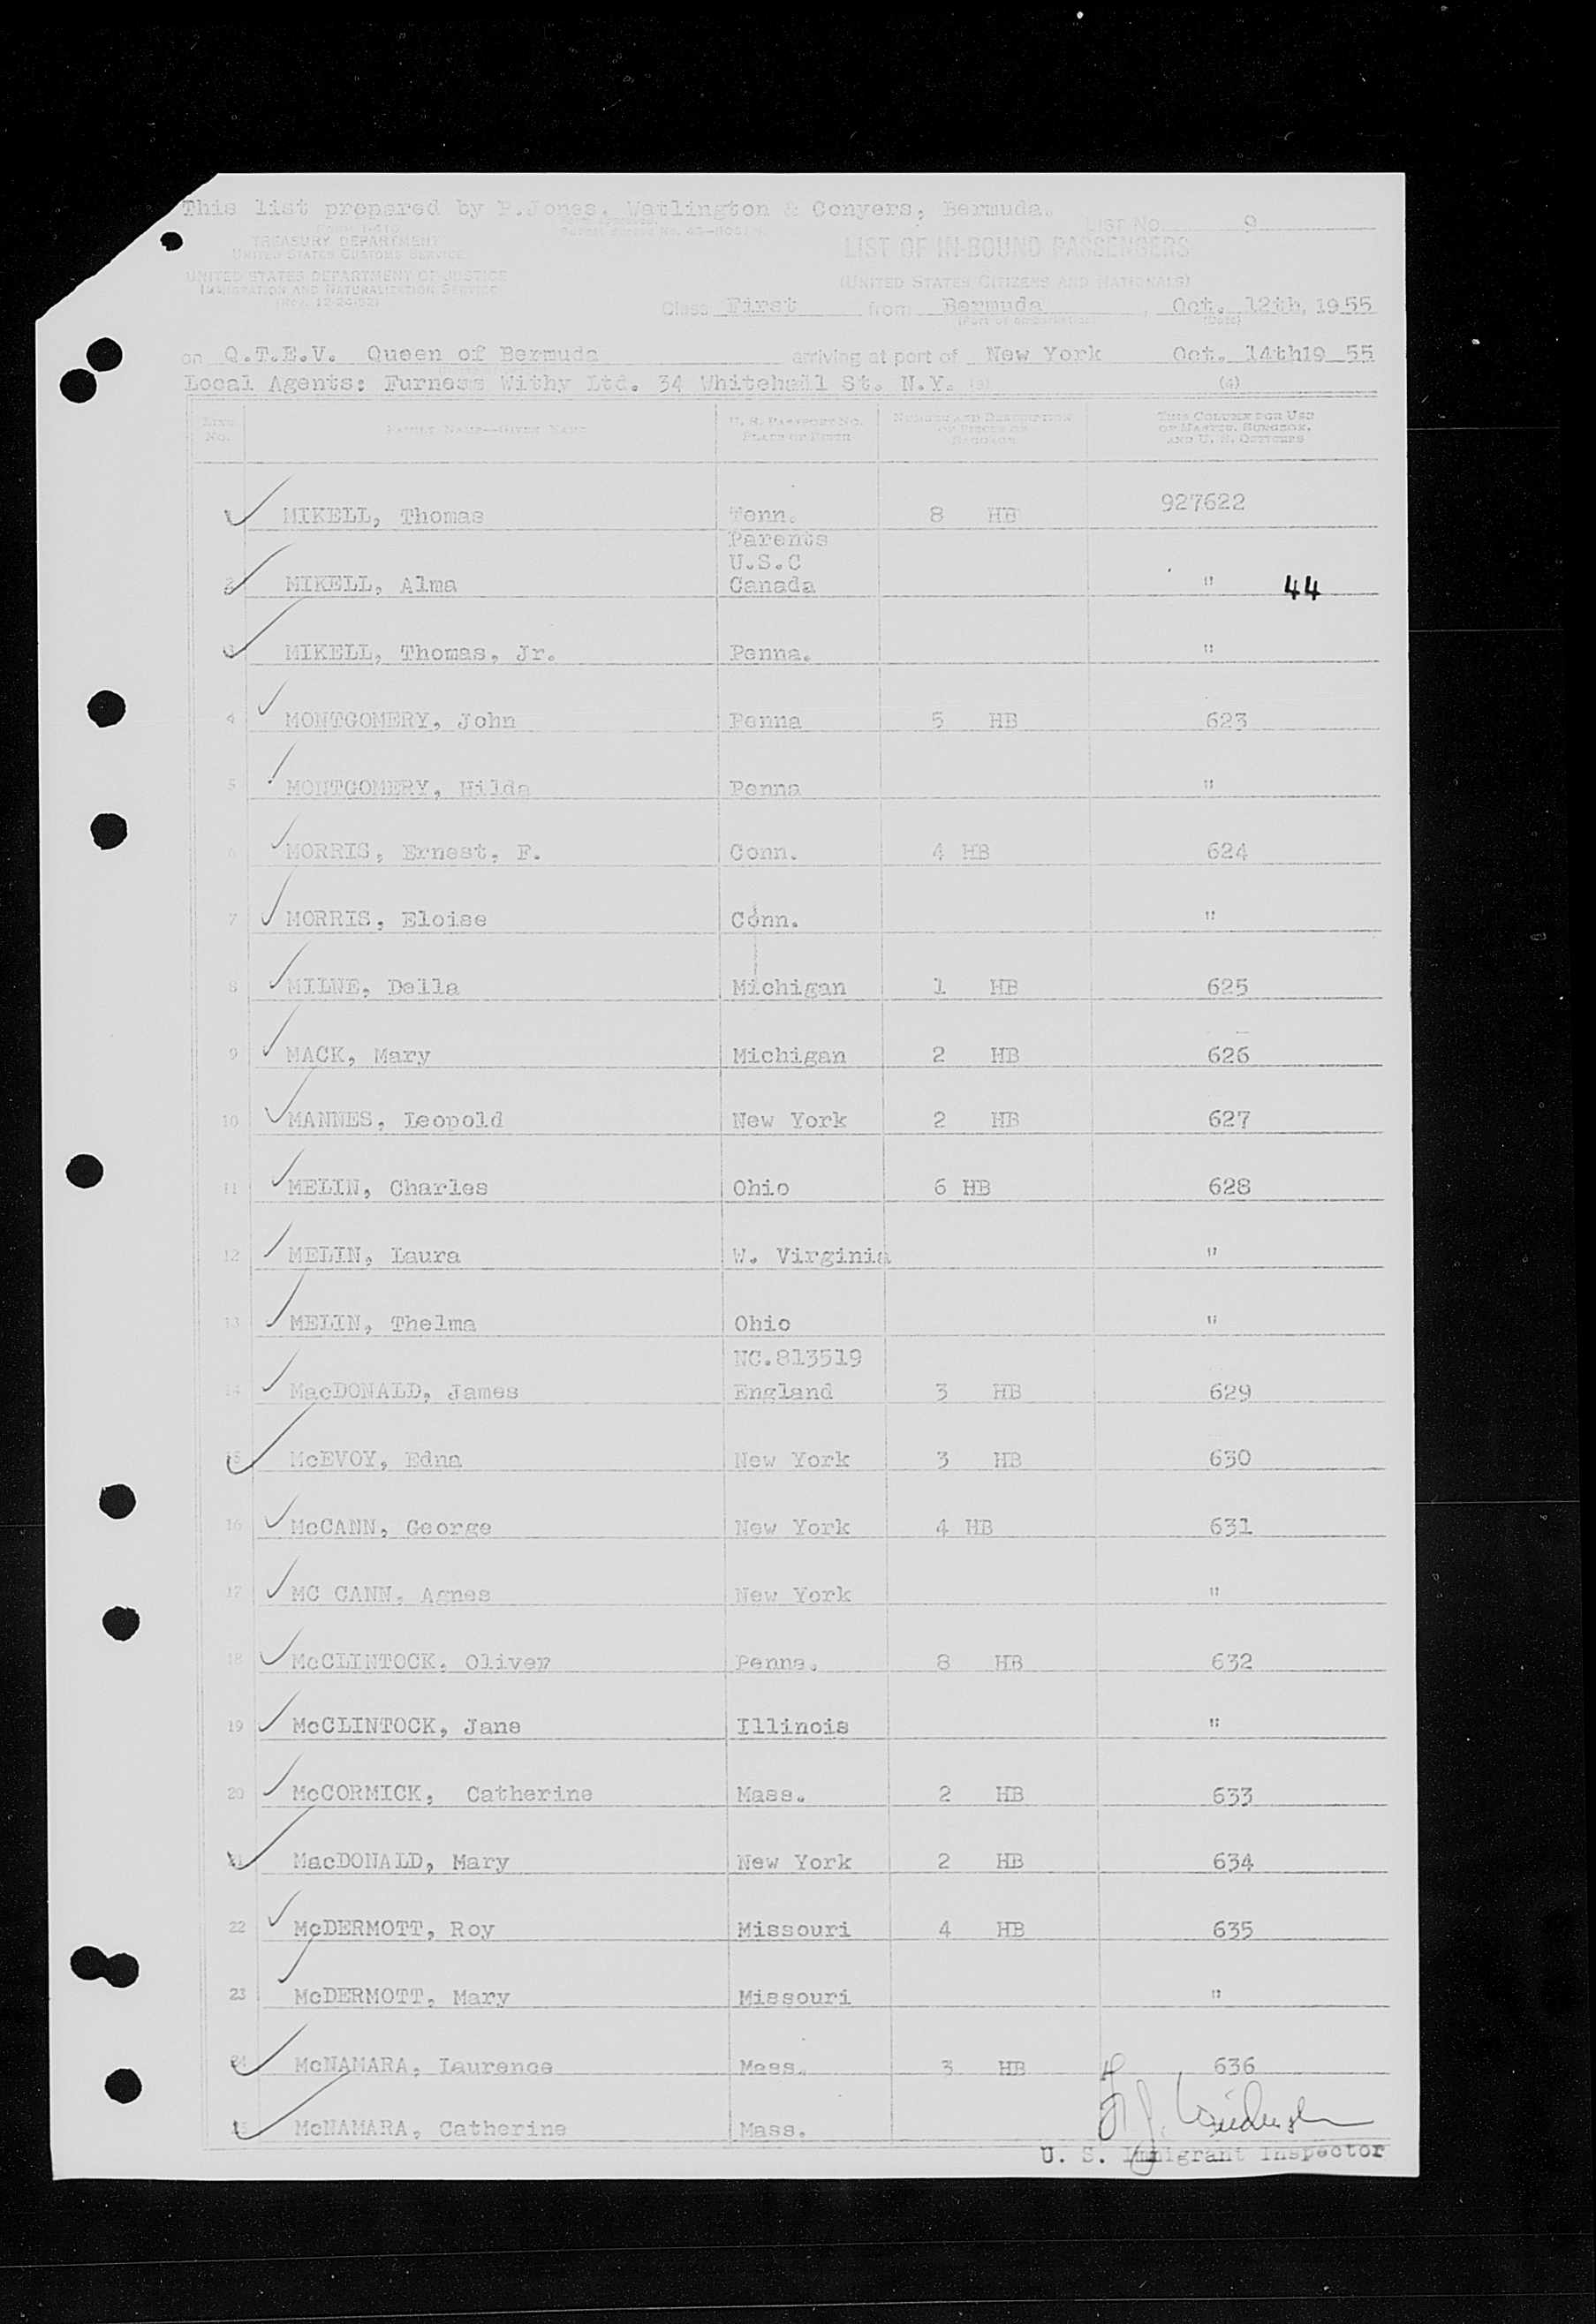 This list prepared by P.Jones, Watlington & Conyers, Bermuda.
LIST No. 9
TREASURY DEPARTMENT
UNITED STATES CUSTOMS SERVICE
LIST OF IN-BOUND PASSENGERS
UNITED STATES DEPARTMENT OF JUSTICE
IMMIGRATION AND NATURALIZATION SERVICE
(Rev. 12-24-52)
(UNITED STATES CITIZENS AND NATIONALS)
Class First from Bermuda, Oct. 12th, 1955
(Port of embarkation) (Date)
on Q.T.E.V. Queen of Bermuda arriving at port of New York Oct. 14th19 55
Local Agents: Furness Withy Ltd. 34 Whitehall St. N.Y. (3) (4)
LINE No. FAMILY NAME—GIVEN NAME U. S. PASSPORT NO. PLACE OF BIRTH NUMBER AND DESCRIPTION OF PIECES OF BAGGAGE THIS COLUMN FOR USE OF MASTER, SURGEON, AND U. S. OFFICERS
MIKELL, Thomas Tenn. 8 HB 927622
Parents
U.S.C
2 MIKELL, Alma Canada " 44
3 MIKELL, Thomas, Jr. Penna. "
4 MONTGOMERY, John Penna 5 HB 623
5 MONTGOMERY, Hilda Penna "
6 MORRIS, Ernest, F. Conn. 4 HB 624
7 MORRIS, Eloise Conn. "
8 MILNE, Della Michigan 1 HB 625
9 MACK, Mary Michigan 2 HB 626
10 MANNES, Leopold New York 2 HB 627
11 MELIN, Charles Ohio 6 HB 628
12 MELIN, Laura W. Virginia "
13 MELIN, Thelma Ohio "
NC.813519
14 MacDONALD, James England 3 HB 629
15 McEVOY, Edna New York 3 HB 630
16 McCANN, George New York 4 HB 631
17 MC CANN, Agnes New York "
18 McCLINTOCK, Oliver Penna. 8 HB 632
19 McCLINTOCK, Jane Illinois "
20 McCORMICK, Catherine Mass. 2 HB 633
21 MacDONALD, Mary New York 2 HB 634
22 McDERMOTT, Roy Missouri 4 HB 635
23 McDERMOTT, Mary Missouri "
24 McNAMARA, Laurence Mass. 3 HB 636
McNAMARA, Catherine Mass.
U. S. Immigrant Inspector